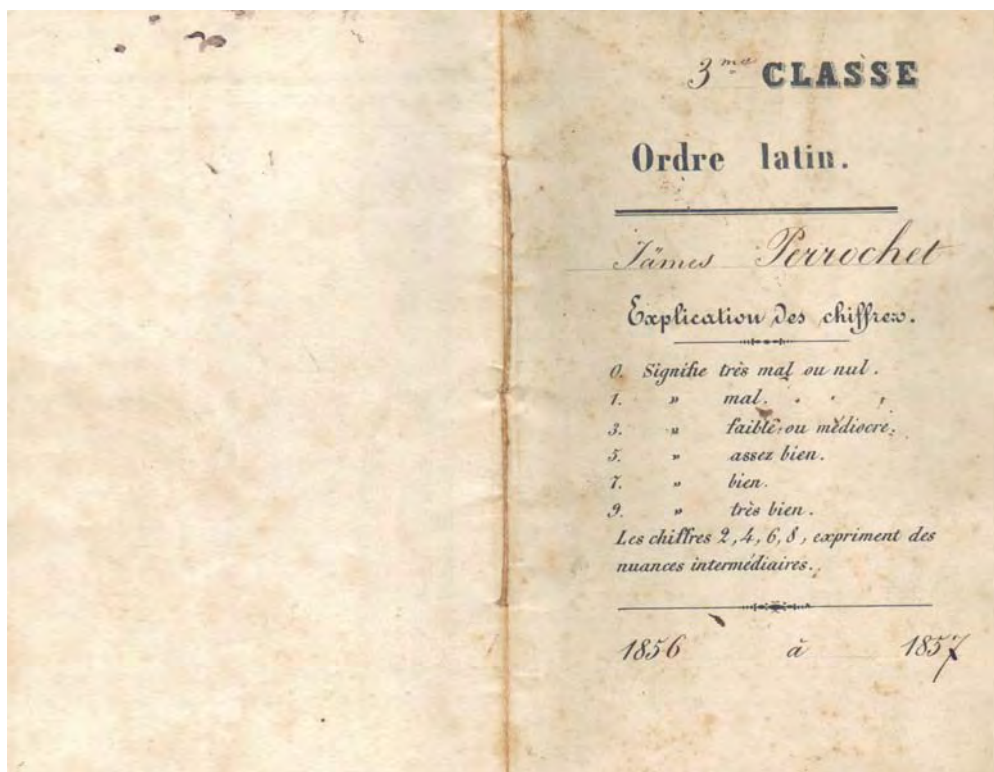 3me CLASSE
Ordre latin.
Jämes Perrochet
Explication des chiffres.
0. Signifie très mal ou nul.
1. " mal. " " "
3. " faible ou médiocre.
5. " assez bien.
7. " bien.
9. " très bien.
Les chiffres 2, 4, 6, 8, expriment des
nuances intermédiaires.
1856 à 1857